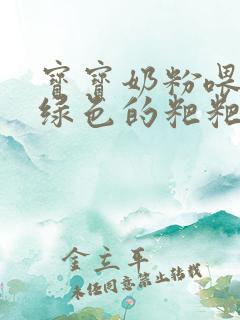 宝宝奶粉喂
绿色的粑粑
金立平
未经同意禁止转载